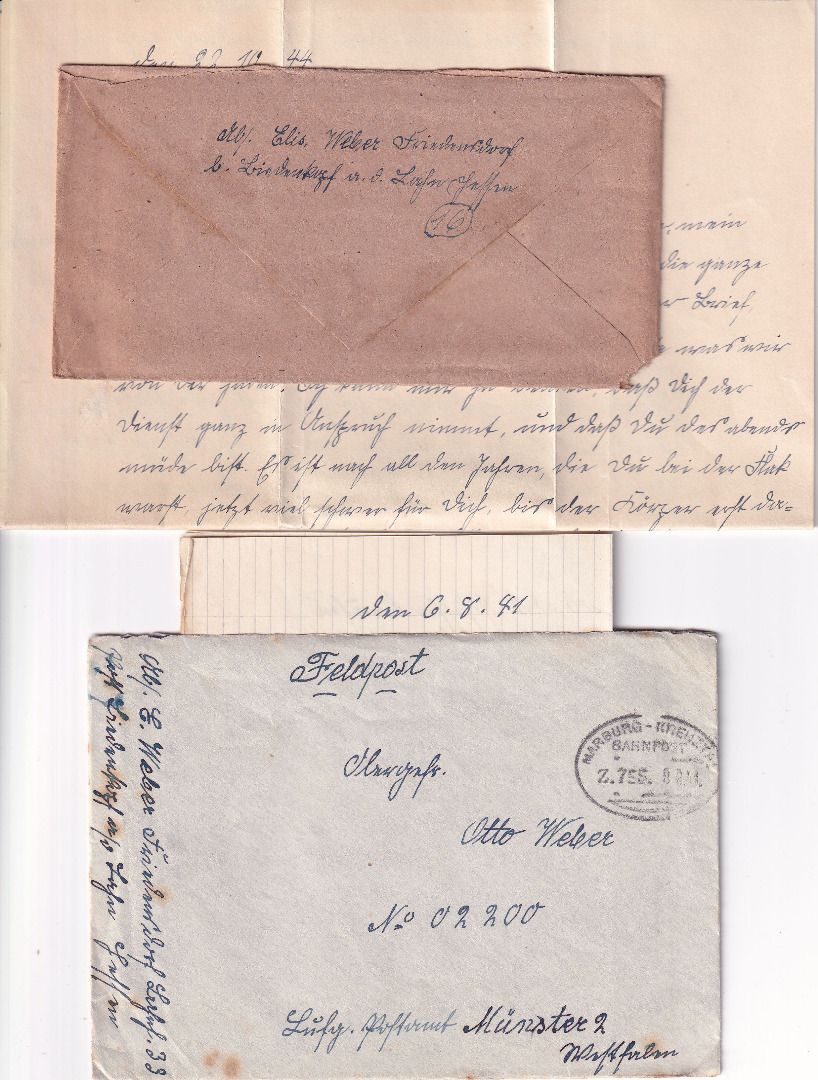 den 22.10.44
Abs. Elis. Weber Friedensdorf
b. Biedenkopf a. d. Lahn Hessen
16
mein
die ganze
Brief,
was wir
von der Ich kann mir denken, daß Dich der
Dienst ganz in Anspruch nimmt, und daß Du des abends
müde bist. Es ist nach all den Jahren, die Du bei der Flak
warst, jetzt viel schwer für Dich, bis der Körper erst da=
den 6.8.41
Feldpost
MARBURG - KREUZTAL
BAHNPOST
Z.756.
Obergefr.
Otto Weber
No 02200
Lufg. Postamt Münster 2
Westfalen
Abs. E. Weber Friedensdorf Lahn. 33
Post Biedenkopf a/d Lahn Hessen